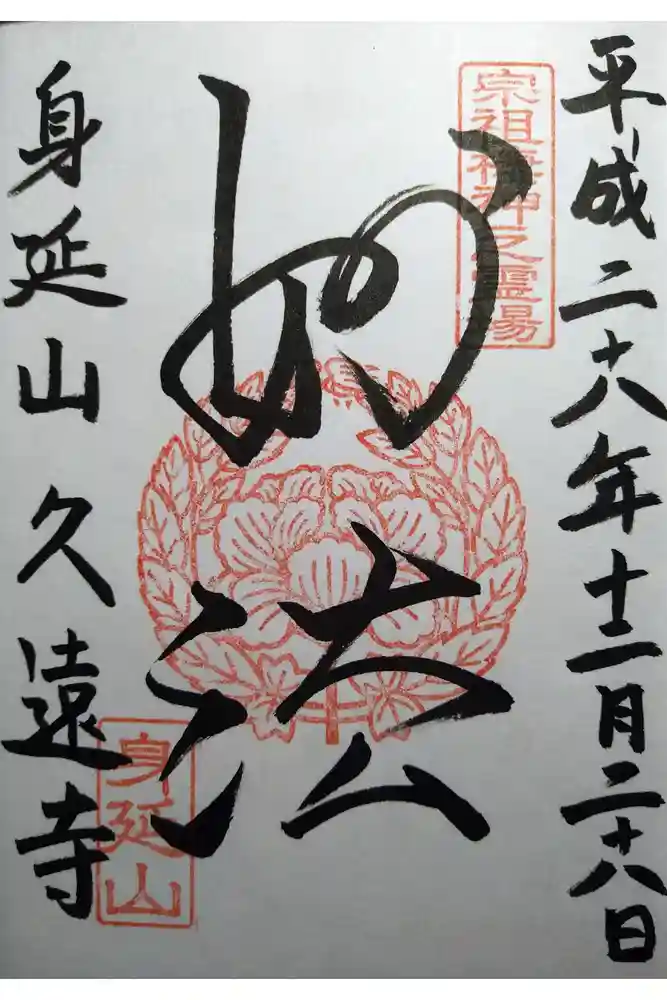 平成二十八年十二月二十八日
宗祖棲神之霊場
妙法
身延山久遠寺
身延山